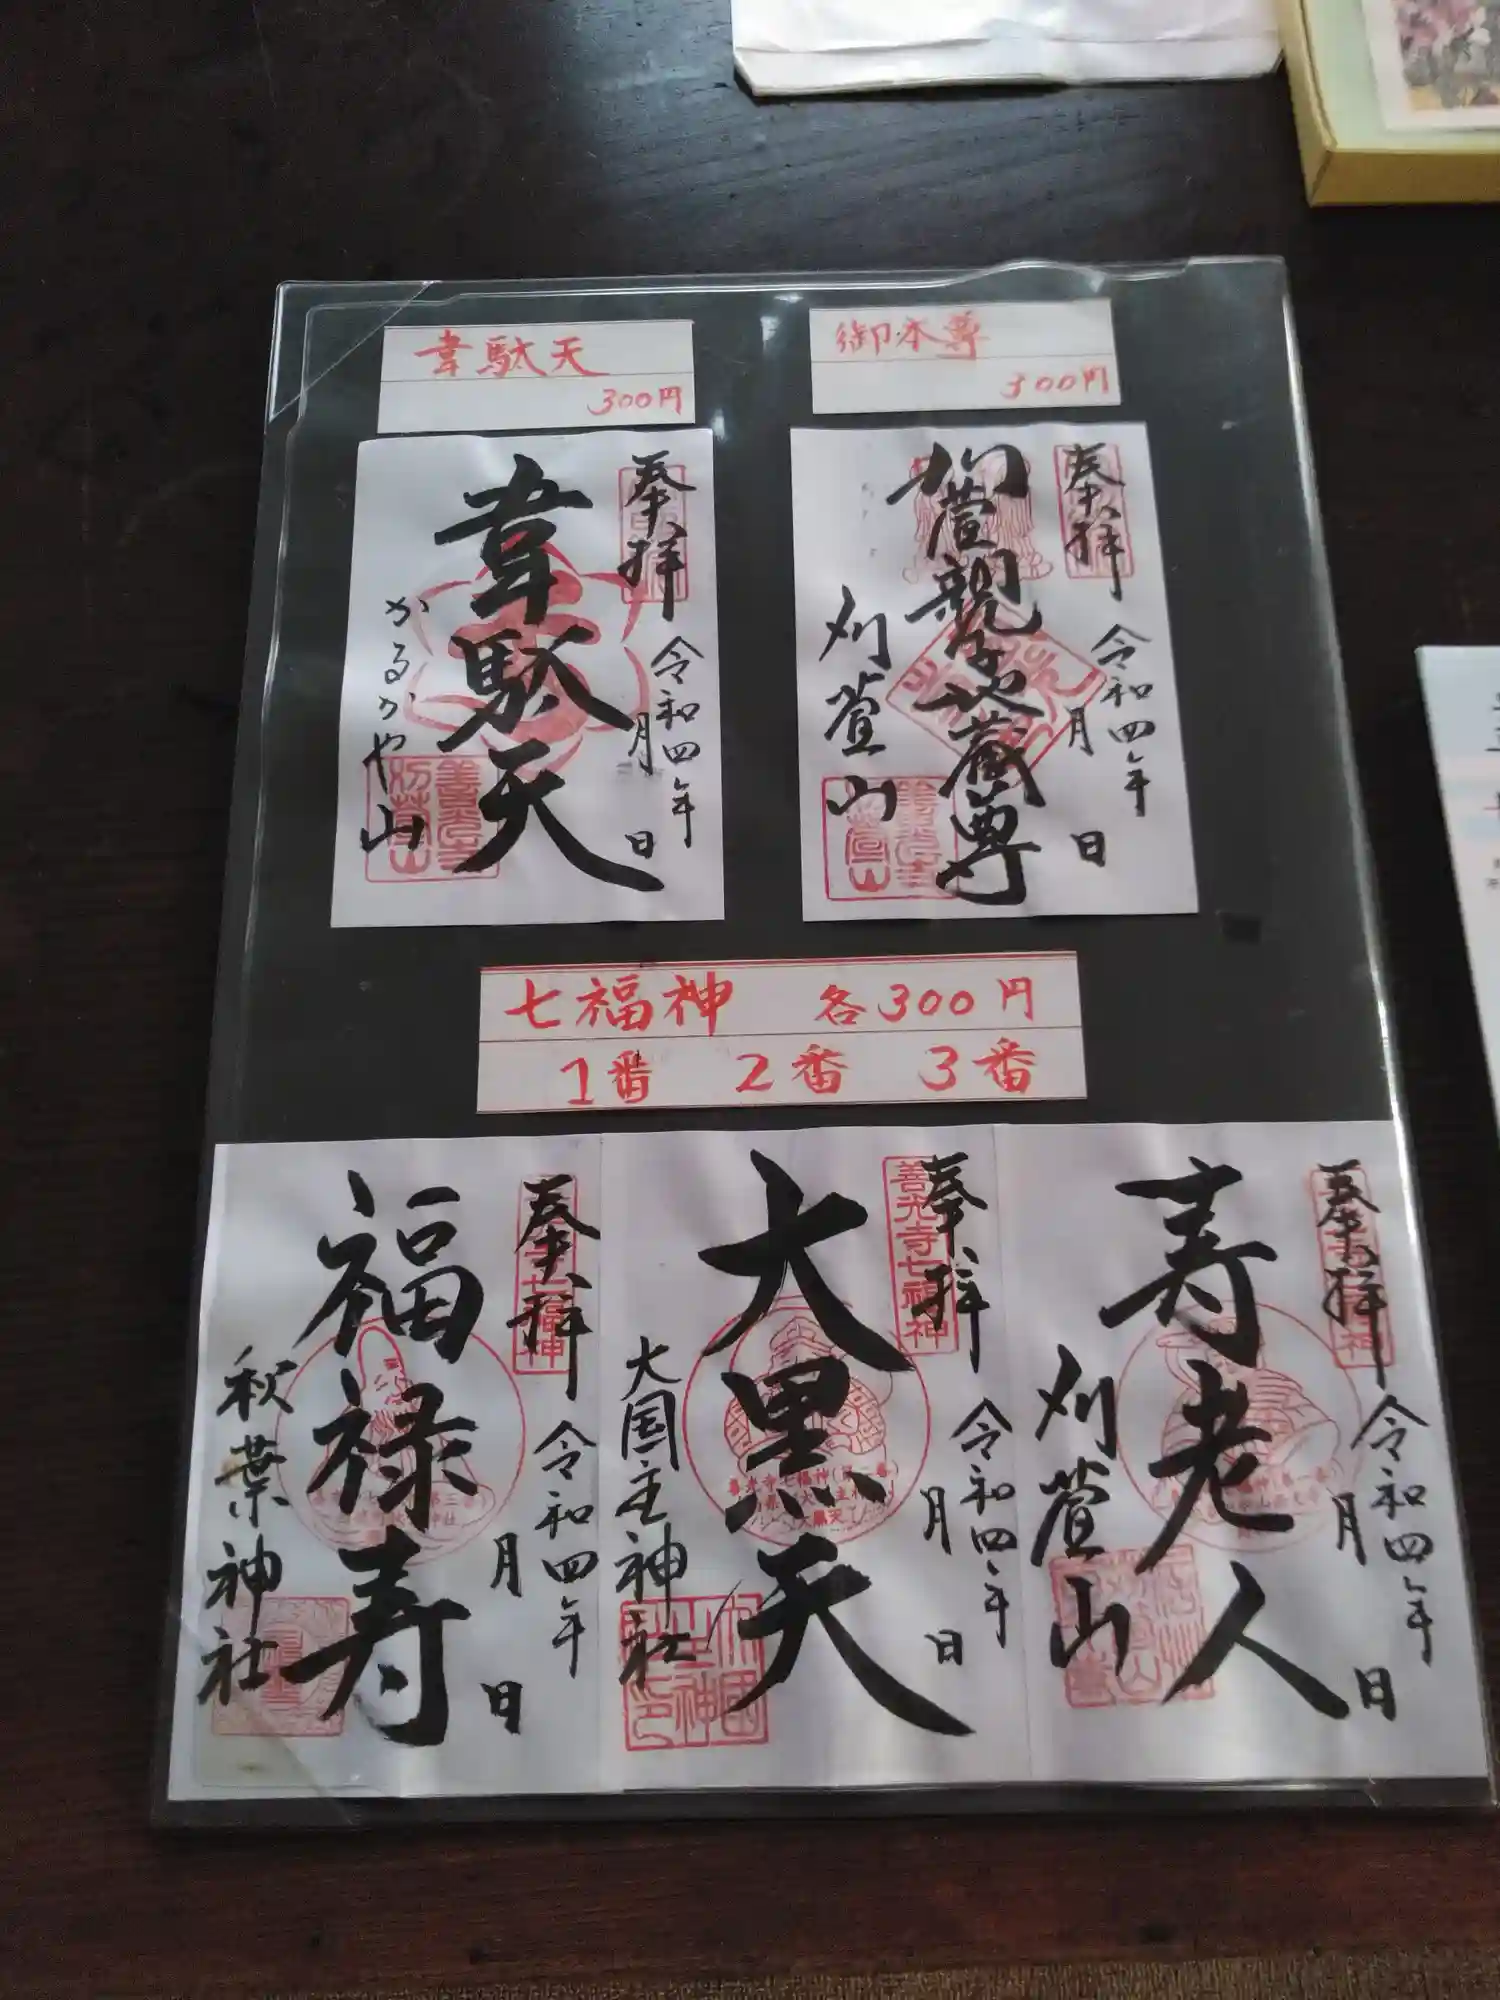 韋駄天
300円
御本尊
300円
奉拝
令和四年
月
日
韋駄天
かるかや山
奉拝
令和四年
月
日
刈萱親子地蔵尊
刈萱山
七福神 各300円
1番 2番 3番
奉拝
令和四年
月
日
福禄寿
秋葉神社
善光寺七福神
奉拝
令和四年
月
日
大黒天
大国主神社
奉拝
令和四年
月
日
寿老人
刈萱山